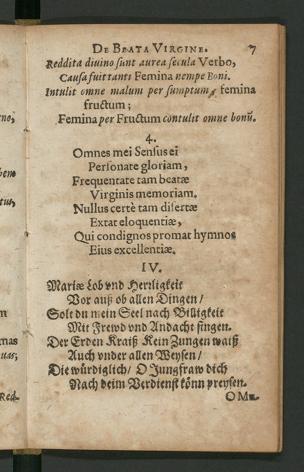 DE BEATA VIRGINE. 7
Reddita diuino sunt aurea secula Verbo,
Causa fuit tanti Femina nempe Boni.
Intulit omne malum per sumptum femina
fructum;
Femina per Fructum contulit omne bonũ.
4.
Omnes mei Sensus ei
Personate gloriam,
Frequentate tam beatæ
Virginis memoriam.
Nullus certè tam disertæ
Extat eloquentiæ,
Qui condignos promat hymnos
Eius excellentiæ.
IV.
Mariæ Lob vnd Herrligkeit
Vor auß ob allen Dingen /
Solt du mein Seel nach Billigkeit
Mit Frewd vnd Andacht singen.
Der Erden Kraiß Kein Zungen waiß
Auch vnder allen Weysen /
Die würdiglich / O Jungfraw dich
Nach deim Verdienst könn preysen.
O Mu.